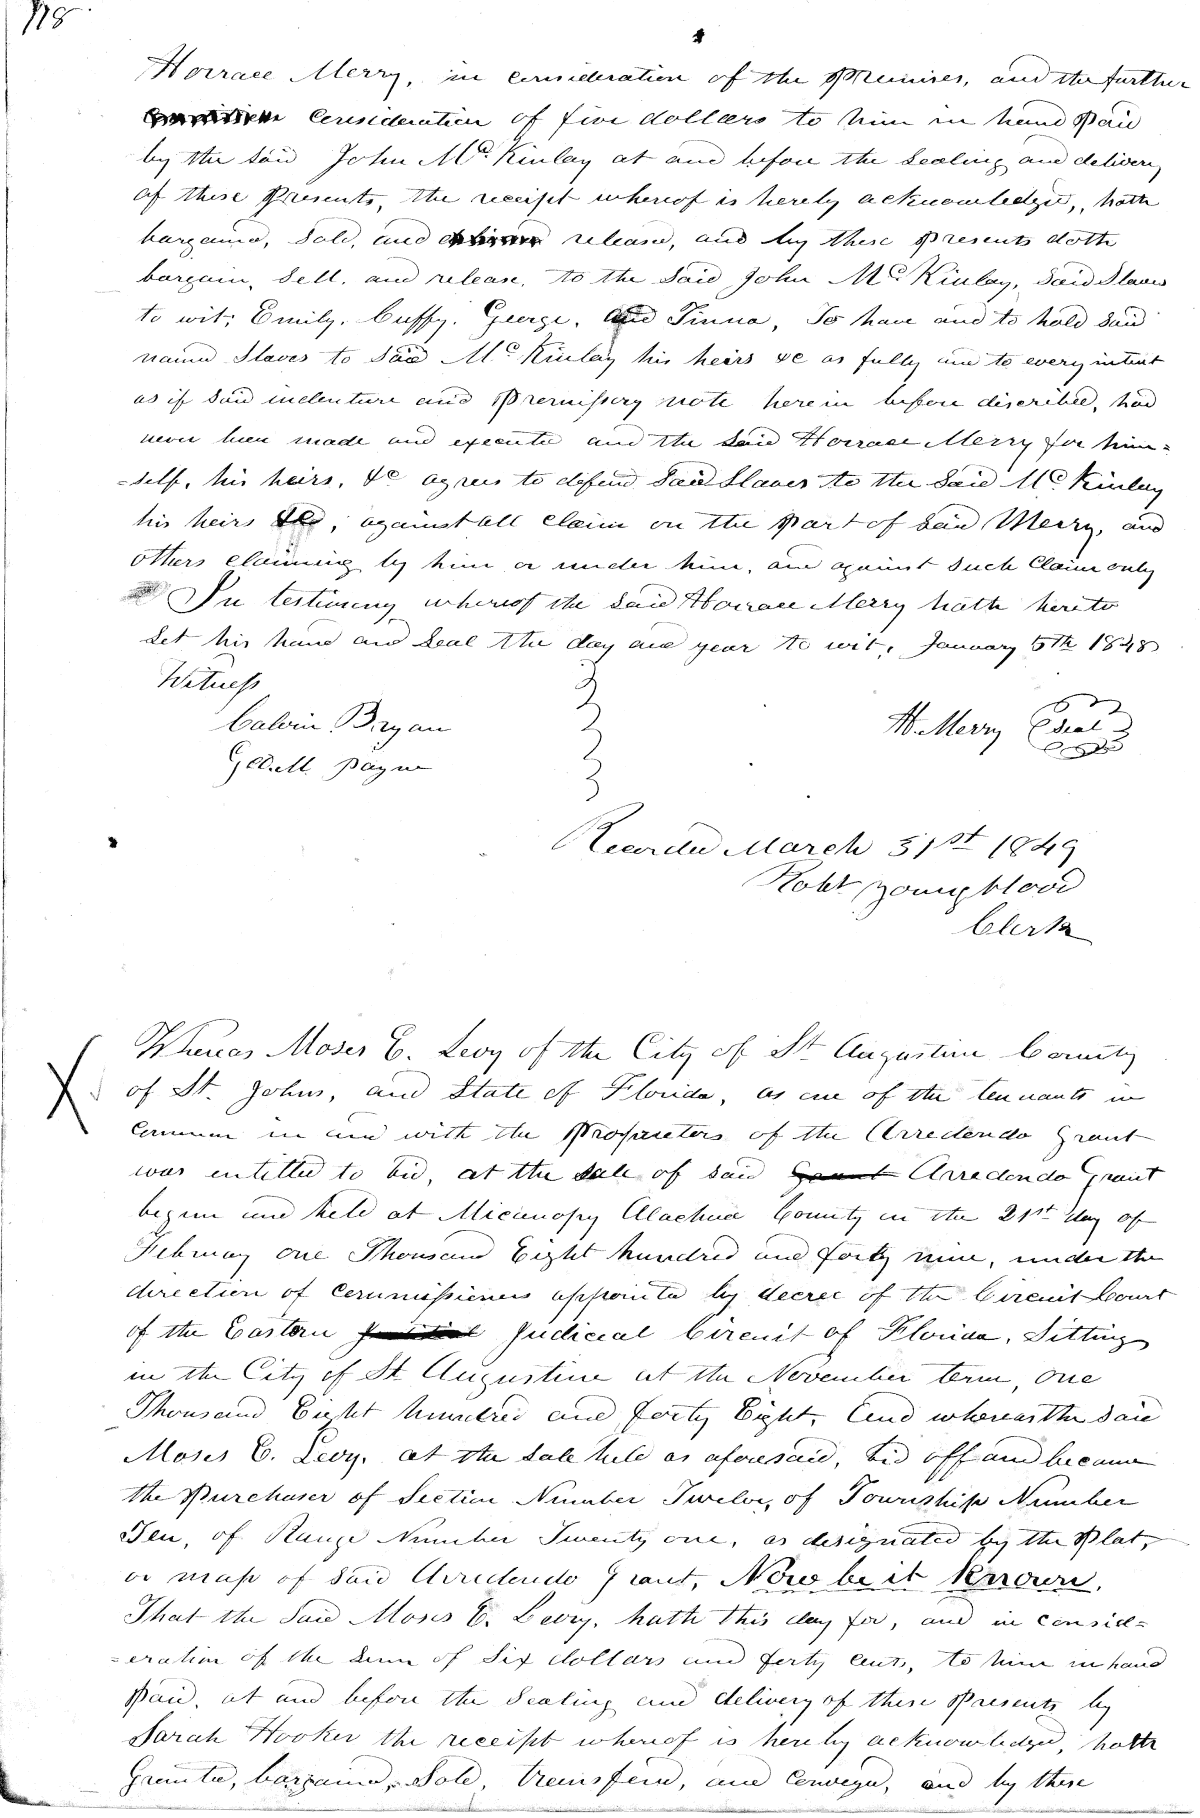 118
Horrace Merry, in consideration of the Premises, and the further
consideration of five dollars to him in hand Paid
by the said John Mc.Kinlay at and before the sealing and delivery
of these Presents, the receipt whereof is hereby acknowledged, hath
bargained, sold, and release, and by these Presents doth
bargain, sell, and release, to the said John Mc Kinlay, said Slaves
to wit; Emily, Cuffy, George, and Tinna, To have and to hold said
named Slaves to said Mc Kinlay his heirs &c as fully and to every intent
as if said indenture and Promissory note herein before discribed, had
never been made and executed and the said Horrace Merry for him=
=self, his heirs, &c agrees to defend said Slaves to the said Mc Kinlay
his heirs &c, against all claim on the Part of said Merry, and
others claiming by him or under him, and against such Claim only
In testimony whereof the said Horrace Merry hath hereto
set his hand and seal the day and year to wit, January 5th 1848
Witness
Calvin Bryan
Payne
H. Merry Seal
Recorded March 31st 1849
Robt Youngblood
Clerk
Whereas Moses E. Levy of the City of St Augustine County
of St. Johns, and State of Florida, as one of the tennants in
common in and with the Proprietors of the Arredondo Grant
was entitled to bid, at the sale of said Grant Arredondo Grant
begun and held at Micanopy Alachua County on the 21st day of
February one Thousand Eight hundred and forty nine, under the
direction of commissioners appointed by decree of the Circuit Court
of the Eastern Judicial Circuit of Florida, Sitting
in the City of St Augustine at the November term, one
Thousand Eight hundred and forty Eight, And whereas the said
Moses E. Levy, at the sale held as aforesaid, bid off and became
the Purchaser of Section Number Twelve, of Township Number
Ten, of Range Number Twenty one, as designated by the Plat,
or map of said Arredondo Grant, Now be it Known,
That the said Moses E. Levy, hath this day for, and in consid=
=eration of the sum of Six dollars and forty cents, to him in hand
Paid, at and before the sealing and delivery of these Presents by
Sarah Hooker the receipt whereof is hereby acknowledged, hath
Granted, bargained, Sold, transferd, and conveyed, and by these